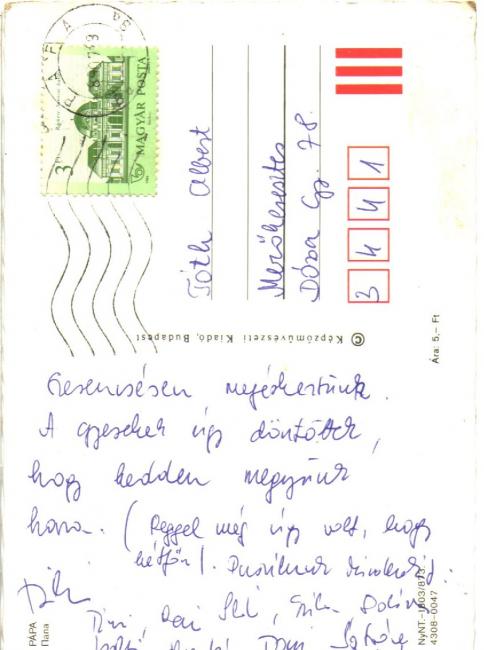 PÁPA
MAGYAR POSTA
3 Ft
Tóth Albert
Mezőkeresztes
Dózsa Gy. 78.
3441
© Képzőművészeti Kiadó, Budapest
Ára: 5,– Ft
Szerencsésen megérkeztünk.
A gyerekek úgy döntöttek,
hogy kedden megyünk
haza. (Reggel még úgy volt, hogy
hétfőn). Puszilunk
PÁPA
Папа
4308-0047